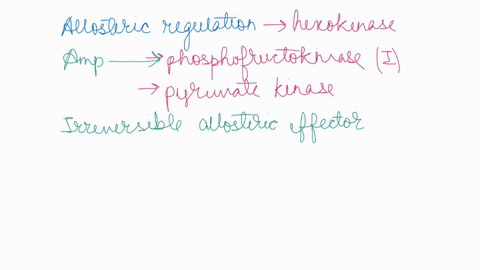 Allosteric regulation → hexokinase
Amp → phosphofructokinase (I)
→ pyruvate kinase
Irreversible allosteric effector